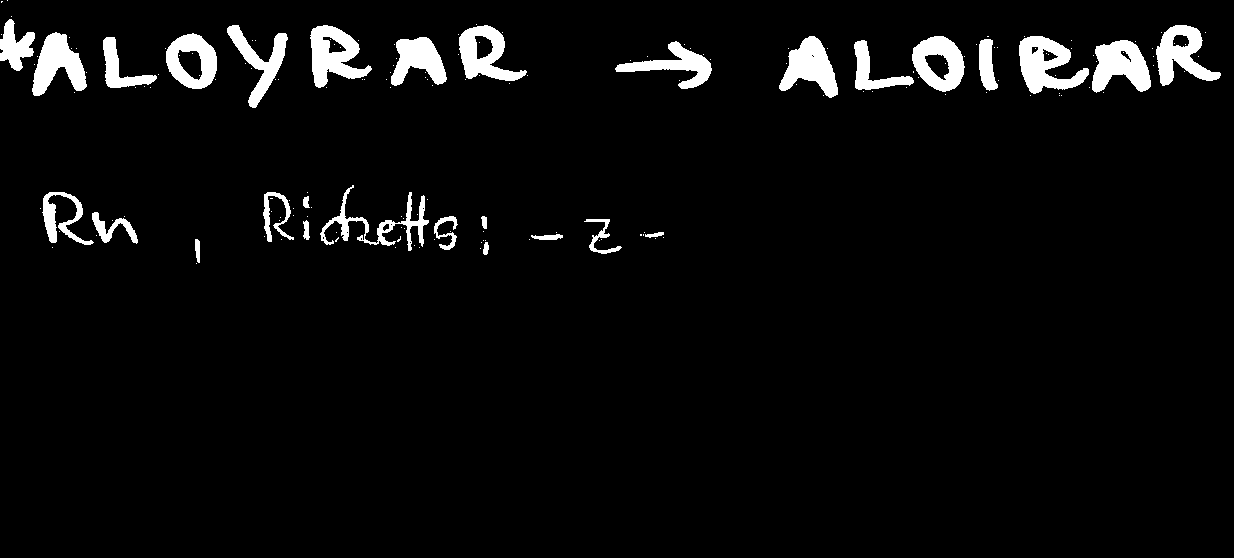 *ALOYRAR → ALOIRAR
Rn, Ricketts: -z-